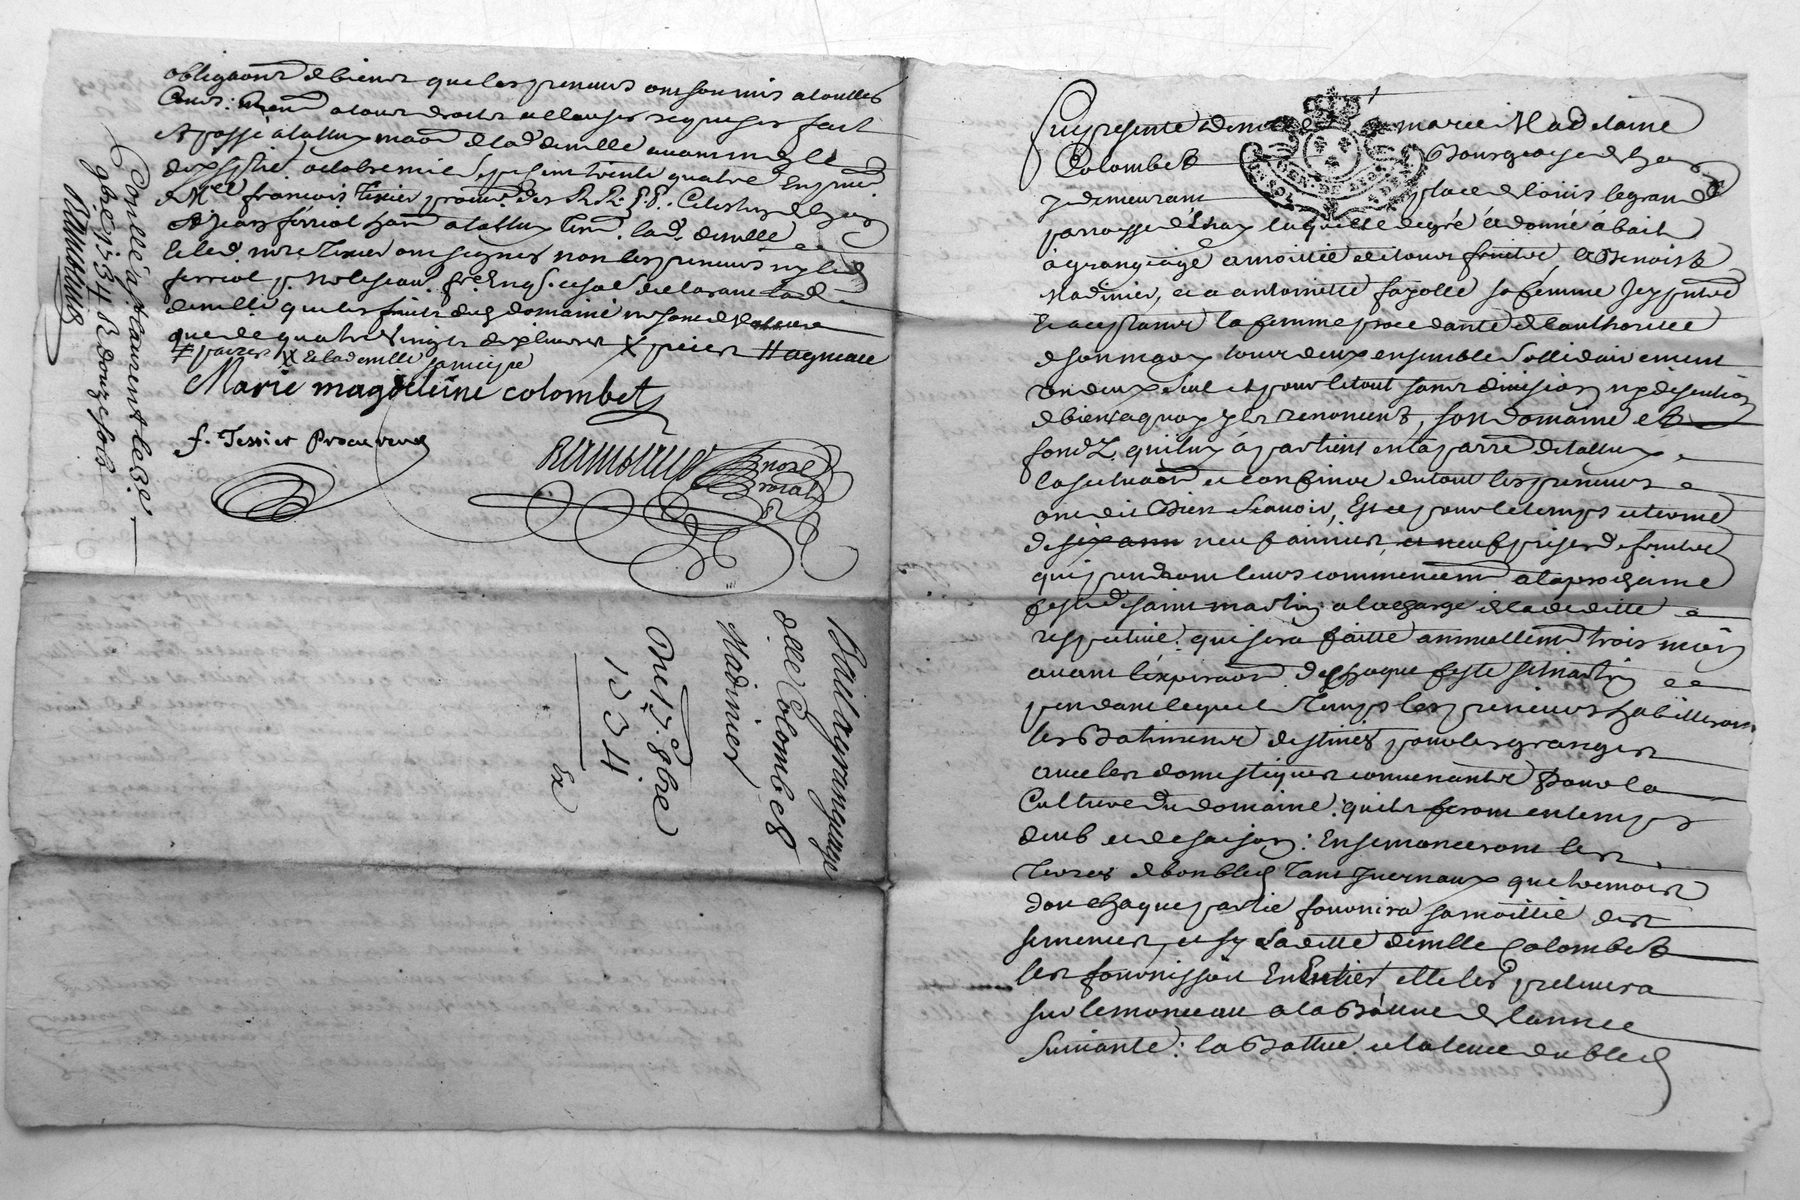 obligaons de biens que les preneurs ont soumis a touttes
Cours: a tous droits et clauses requises fait
et passé a tassin maon de lad. demlle avant midy le
dixseptie. octobre mil sept cent trente quatre en pnce
de Mre françois Tixier procur. des R.R. P.P. Celestins de Lyon
et Jean ferriol a tassin lad. demlle
et led. mre Tixier ont signés non les preneurs ny led.
ferriol p. ne le scavoir de ce enquis declarant lad.
demlle que les fruits dud. domaine ne sont de valeur
que de quatre vingts dix livres
et la demlle
Marie magdeleine colombet
f. Tessier Procureur
nore
roial
Conllé a st laurent le 23e.
9bre 1734. R. douze sols
Bail a grangeage
dlle Colombet
Madinier
Du 17. 8bre
1734
Ex
fut presente demlle marie Madelaine
Colombet Bourgeoise de Lyon
y demeurant place de Louis le grand
parroisse d'Ainay laquelle de gré a donné à bail
à grangeage a moitié de tous fruits, a Benoist
Madinier, et a antoinette fayolle sa femme icy pnts
et acceptants la femme procedante de l'authorité
de son mary tous deux ensemble sollidairement
un deux seul et pour le tout sans division ny discution
de biens a quoy ils renoncent, son domaine et
fonds quil luy àpartient en la parre de tassin
la scituaon et confins du tout les preneurs
ont dit bien scavoir, Est ce pour le temps et terme
de six ans neuf années, et neuf prises de fruits
qui prendront leurs commencemt a la prochaine
feste de saint martin a la charge de la deditte
respective qui sera faitte annuellemt trois mois
avant l'expiraon de chaque feste st martin
pendant lequel temps les preneurs habitteront
les Batiments destinés pour les grangers
avec les domestiques convenants pour la
Culture du domaine quils feront en temps
deub et de saison: Ensemanceront les
Terres de bon bled tant yvernaux que tremois
dont chaque partie fournira sa moittié des
semences, et sy ladite demlle Colombet
les fournissoit en Entier elle les prelevera
sur le monceau a la Bonne de l'année
suivante: la Battue et la levée du bled